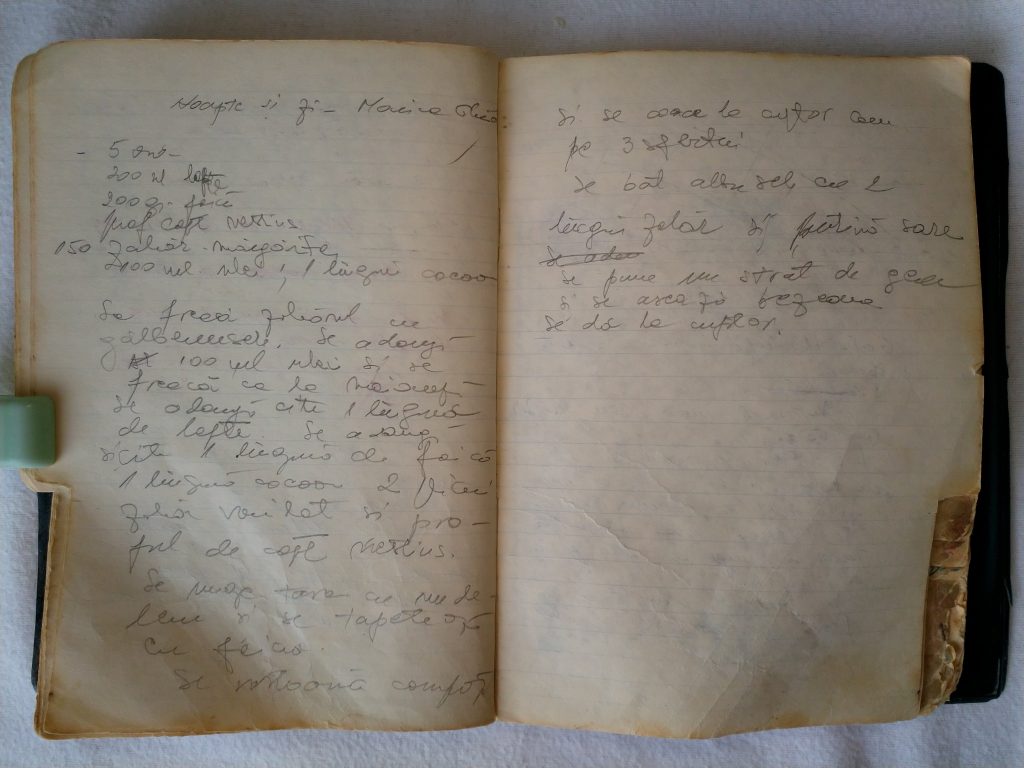 Noapte și zi – Marina
– 5 ouă –
200 ml lapte
200 gr. făină
praf copt Nestlus
150 zahăr margarită
100 ml ulei, 1 lingură cacao
Se freacă zahărul cu
gălbenușele. Se adaugă
100 ml ulei și se
freacă ca la maioneză
Se adaugă cîte 1 lingură
de lapte. Se adaugă
și cîte 1 lingură de făină
1 lingură cacao 2 plicuri
zahăr vanilat și pra-
ful de copt
Se unge tava cu unde-
lemn și se tapetează
cu făină.
Se răstoarnă compoz
și se coace la cuptor cam
pe 3 sferturi
Se bat albușele cu 2
linguri zahăr și puțină sare
Se pune un strat de gem
și se așează bezeaua
Se dă la cuptor.